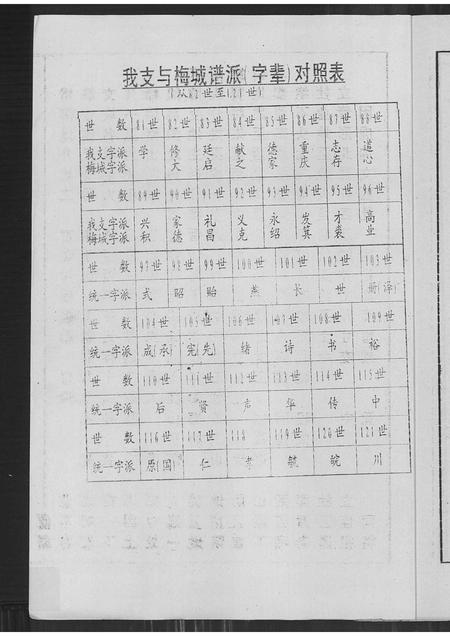 我支与梅城谱派(字辈)对照表
(从81世至121世)
世 数 81世 82世 83世 84世 85世 86世 87世 88世
我支字派 学 修 廷 献 德 重 志 道
梅城字派 大 启 之 家 庆 存 心
世 数 89世 90世 91世 92世 93世 94世 95世 96世
我支字派 兴 家 礼 义 永 发 才 高
梅城字派 积 德 昌 克 绍 箕 裘 业
世 数 97世 98世 99世 100世 101世 102世 103世
统一字派 式 昭 贻 燕 长 世 (泽)
世 数 104世 105世 106世 107世 108世 109世
统一字派 成(承) 宪(先) 绪 诗 书 裕
世 数 110世 111世 112世 113世 114世 115世
统一字派 后 贤 声 华 传 中
世 数 116世 117世 118 119世 120世 121世
统一字派 原(国) 仁 孝 毓 皖 川